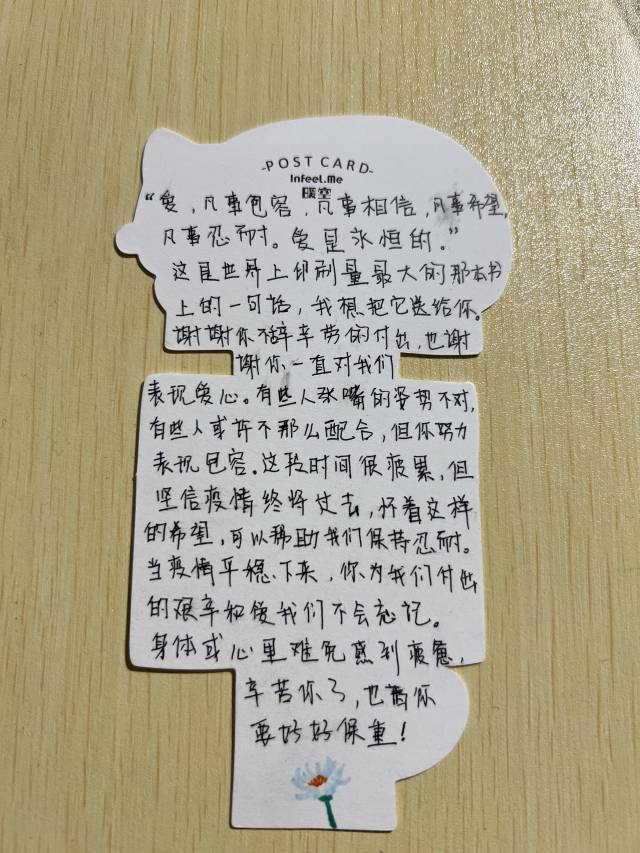 -POST CARD-
Infeel.Me
暖空
“爱,凡事包容,凡事相信,凡事希望,
凡事忍耐。爱是永恒的。”
这是世界上印刷量最大的那本书
上的一句话,我想把它送给你。
谢谢你不辞辛劳的付出,也谢
谢你一直对我们
表现爱心。有些人张嘴的姿势不对,
有些人或许不那么配合,但你努力
表现包容。这段时间很疲累,但
坚信疫情终将过去,怀着这样
的希望,可以帮助我们保持忍耐。
当疫情平稳下来,你为我们付出
的艰辛和爱我们不会忘记。
身体或心里难免感到疲惫,
辛苦你了,也请你
要好好保重!